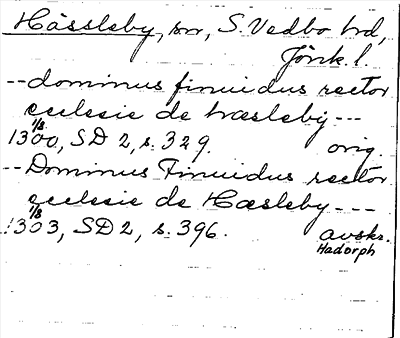 Hässleby, sn, S. Vedbo hd,
Jönk. l.
-- dominus finuidus rector
ecclesie de hæsleby ---
1/8
1300, SD 2, s. 329. orig.
-- Dominus Finuidus rector
ecclesie de Hæsleby ---
1/8
1303, SD 2, s. 396. avskr.
Hadorph